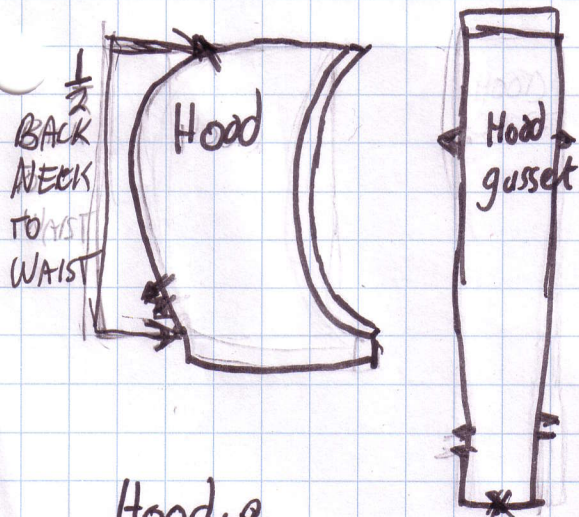 1/2
BACK
NECK
TO
WAIST
Hood
Hood
gusset